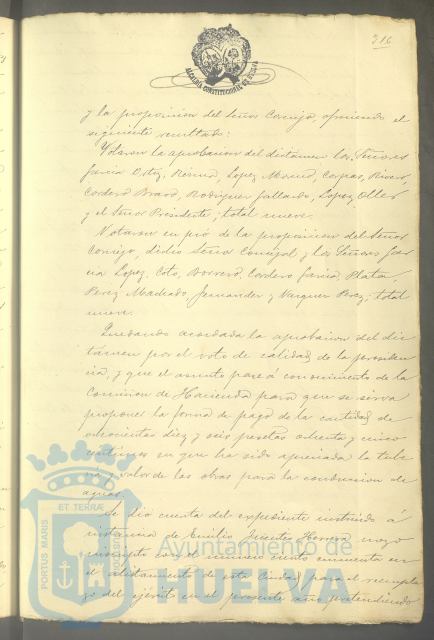 316
ALCALDÍA CONSTITUCIONAL DE HUELVA
y la proposicion del Señor Cornejo, ofreciendo el
siguiente resultado:
Votaron la aprobacion del dictámen los Señores
García Ortiz, Lopez Moreno, Rivas,
Cordero Bravo, Rodriguez Gallardo, Lopez Oller
y el Señor Presidente; total nueve.
Votaron en pró de la proposicion del Señor
Cornejo, dicho Señor Concejal y los Señores Gar
cia Lopez, Coto, Borrero, Cordero García, Plata,
Perez Machado, Fernandez y Vazquez Perez, total
nueve.
Quedando acordada la aprobacion del dic
támen por el voto de calidad de la presiden
cia, y que el asunto pase á conocimiento de la
Comision de Hacienda para que se sirva
proponer la forma de pago de la cantidad de
ochocientas diez y seis pesetas ochenta y cinco
centimos en que ha sido apreciada la tube
ria y valor de las obras para la conduccion de
aguas.
Se dio cuenta del expediente instruido á
instancia de Emilio Fuentes Herrera mozo
con el número ciento cincuenta en
el alistamiento de esta Ciudad para el reempla
zo del ejército en el presente año pretendiendo
PORTUS MARIS ET TERRÆ CUSTODIA
Ayuntamiento de
HUELVA